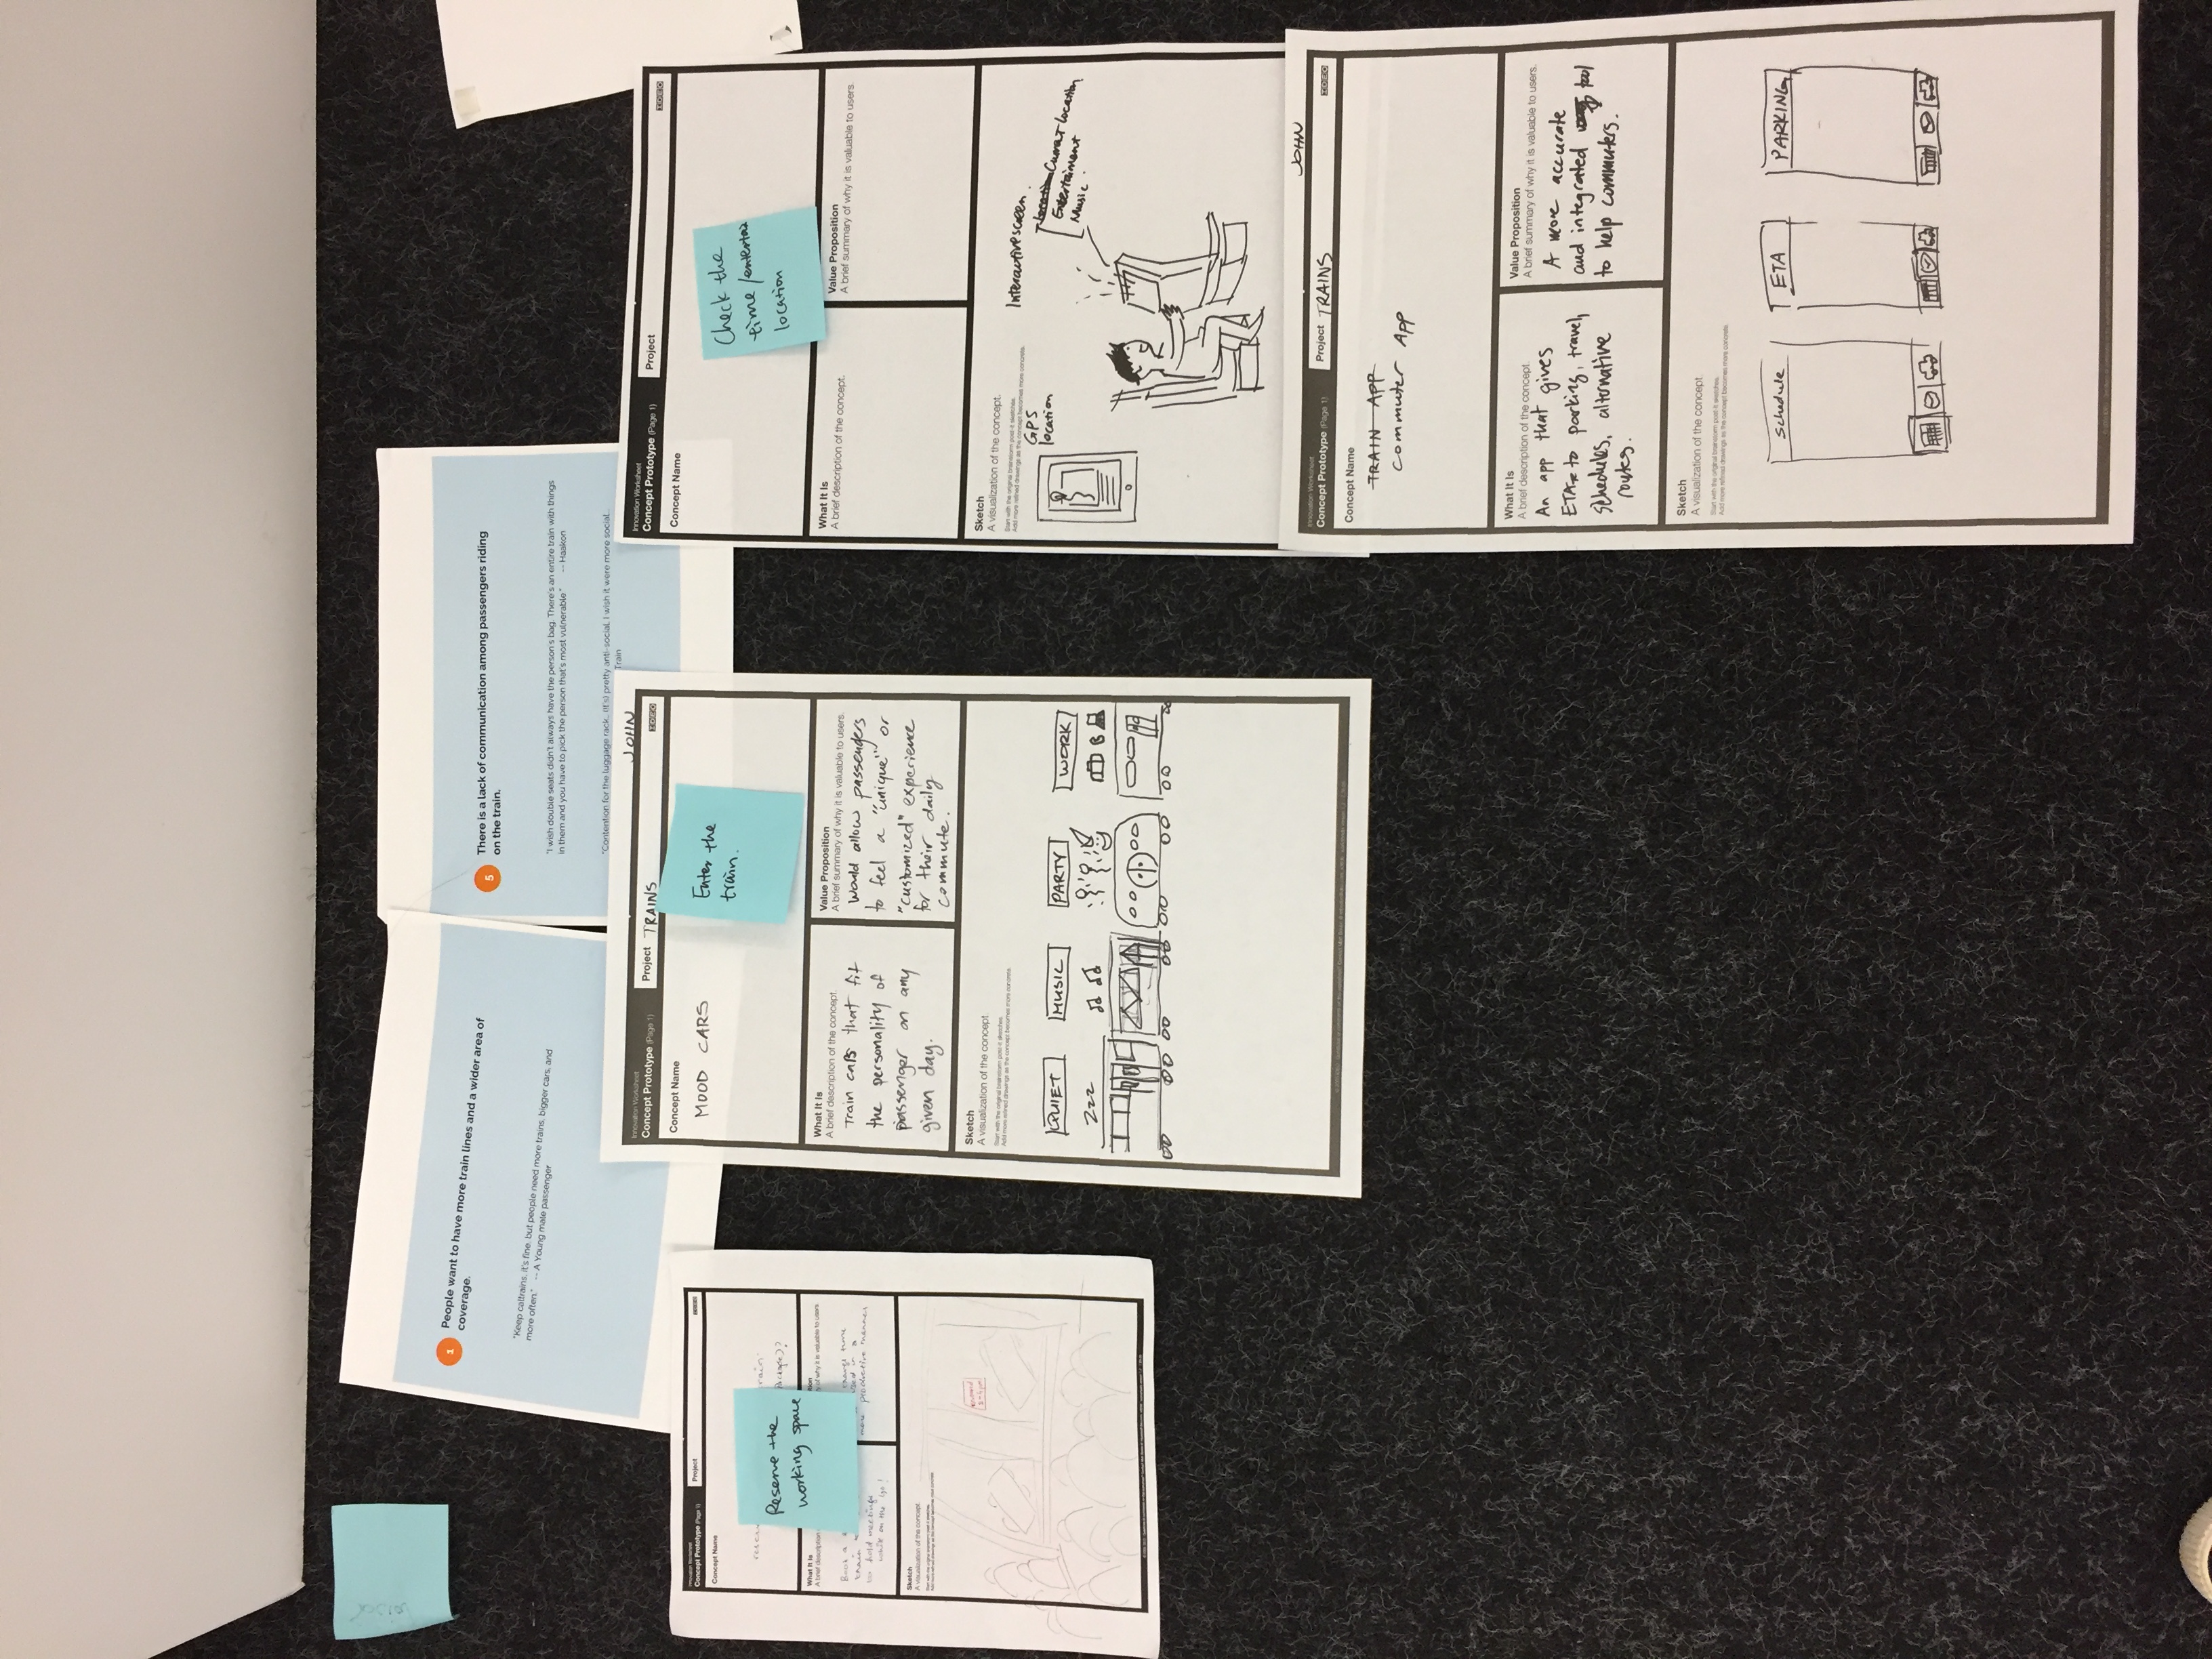 1
People want to have more train lines and a wider area of
coverage.
"Keep caltrains, it's fine, but people need more trains, bigger cars, and
more often."  -- A Young male passenger
5
There is a lack of communication among passengers riding
on the train.
"I wish double seats didn't always have the person's bag. There's an entire train with things
in them and you have to pick the person that's most vulnerable"  -- Haakon
"Contention for the luggage rack.. (it's) pretty anti-social, I wish it were more social...
Train
Innovation Worksheet
Concept Prototype (Page 1)
Project
IDEO
Concept Name
Reserve the
working space
What It Is
A brief description
of why it is valuable to users
Book a
train
to hold meetings
while on the go!
travel time
used in a
more productive manner
Sketch
A visualization of the concept.
Start with the original brainstorm post-it sketches.
Add more refined drawings as the concept becomes more concrete.
JOHN
Innovation Worksheet
Concept Prototype (Page 1)
Project TRAINS
IDEO
Concept Name
MOOD CARS
Enter the
train.
What It Is
A brief description of the concept.
Train cars that fit
the personality of
passenger on any
given day.
Value Proposition
A brief summary of why it is valuable to users.
Would allow passengers
to feel a "unique" or
"customized" experience
for their daily
commute.
Sketch
A visualization of the concept.
Start with the original brainstorm post-it sketches.
Add more refined drawings as the concept becomes more concrete.
QUIET
MUSIC
PARTY
WORK
ZZZ
Innovation Worksheet
Concept Prototype (Page 1)
Project
IDEO
Concept Name
Check the
time /entertai
location
What It Is
A brief description of the concept.
Value Proposition
A brief summary of why it is valuable to users.
Sketch
A visualization of the concept.
Start with the original brainstorm post-it sketches.
Add more refined drawings as the concept becomes more concrete.
GPS
location
Interactive screen.
location Currat location
Entertaiment
Music.
JOHN
Innovation Worksheet
Concept Prototype (Page 1)
Project TRAINS
IDEO
Concept Name
TRAIN APP
Commuter App
What It Is
A brief description of the concept.
An app that gives
ETAs to parking, travel,
schedules, alternative
routes.
Value Proposition
A brief summary of why it is valuable to users.
A more accurate
and integrated tool
to help commuters.
Sketch
A visualization of the concept.
Start with the original brainstorm post-it sketches.
Add more refined drawings as the concept becomes more concrete.
Schedule
ETA
PARKING